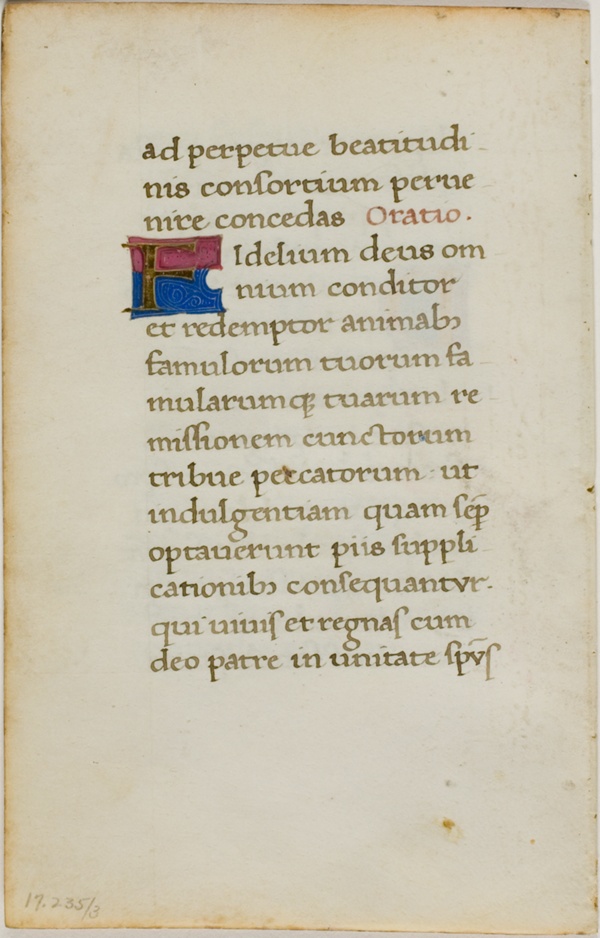 ad perpetue beatitudi
nis conſortium perue
nire concedas Oratio.
FIdelium deus om
nium conditor
et redemptor animabꝫ
famulorum tuorum fa
mularumqꝫ tuarum re
miſſionem cunctorum
tribue peccatorum ut
indulgentiam quam ſep̄
optauerunt piis ſuppli
cationibꝫ conſequantvr.
qui uiuiſ et regnaſ cum
deo patre in unitate ſpv̄ſ
17.235/3